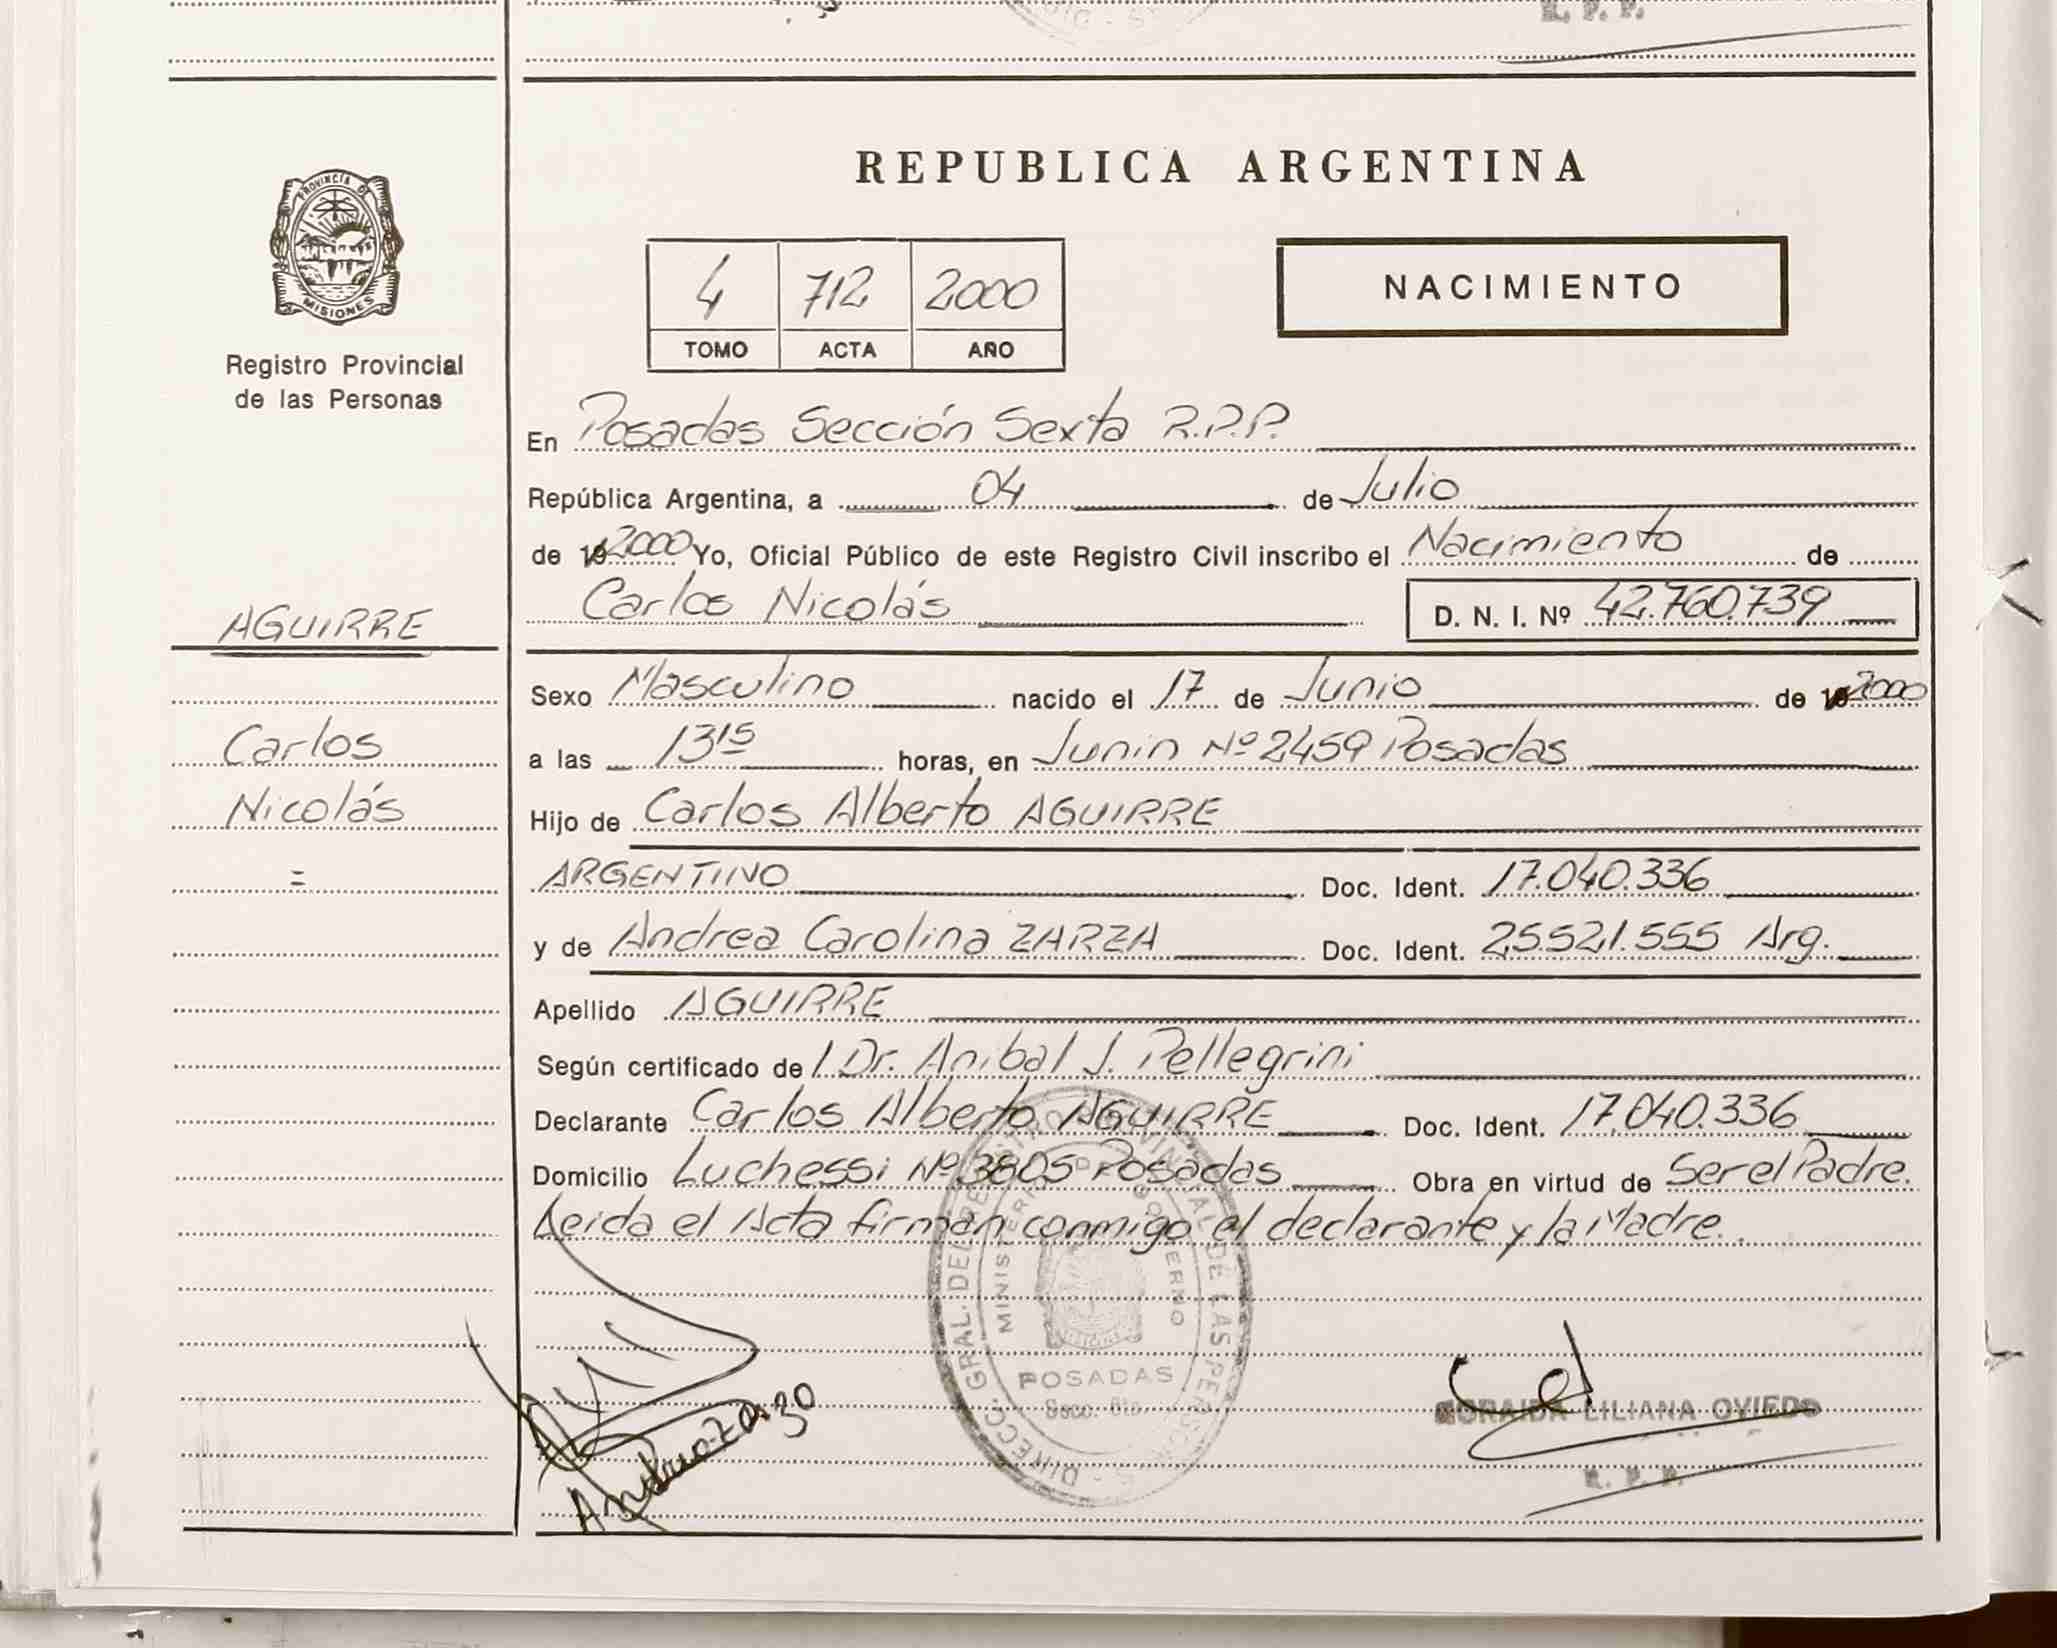 R. P. P.
PROVINCIA DE
MISIONES
Registro Provincial
de las Personas
AGUIRRE
Carlos
Nicolás
=
REPUBLICA ARGENTINA
4 712 2000
TOMO ACTA AÑO
NACIMIENTO
En Posadas Sección Sexta R.P.P.
República Argentina, a 04 de Julio
de 19 2000 Yo, Oficial Público de este Registro Civil inscribo el Nacimiento de
Carlos Nicolás D. N. I. Nº 42.760.739
Sexo Masculino nacido el 17 de Junio de 19 2000
a las 13 15 horas, en Junin Nº 2459 Posadas
Hijo de Carlos Alberto AGUIRRE
ARGENTINO Doc. Ident. 17.040.336
y de Andrea Carolina ZARZA Doc. Ident. 25.521.555 Arg.
Apellido AGUIRRE
Según certificado de l Dr. Anibal J. Pellegrini
Declarante Carlos Alberto AGUIRRE Doc. Ident. 17.040.336
Domicilio Luchessi Nº 3805 Posadas Obra en virtud de Ser el Padre.
Leida el Acta firman conmigo el declarante y la Madre.
DIRECC. GRAL. DEL REGISTRO PROVINCIAL DE LAS PERSONAS
MINISTERIO DE GOBIERNO
POSADAS
Secc. 6ta
ZORAIDA LILIANA OVIEDO
R. P. P.